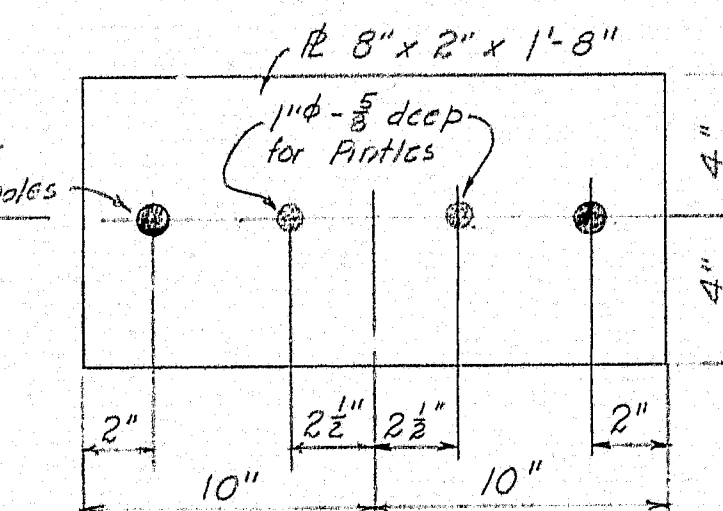 ℄ 8" x 2" x 1'-8"
1"φ - 5/8 deep
for Pintles
oles
4"
4"
2"
2 1/2"
2 1/2"
2"
10"
10"